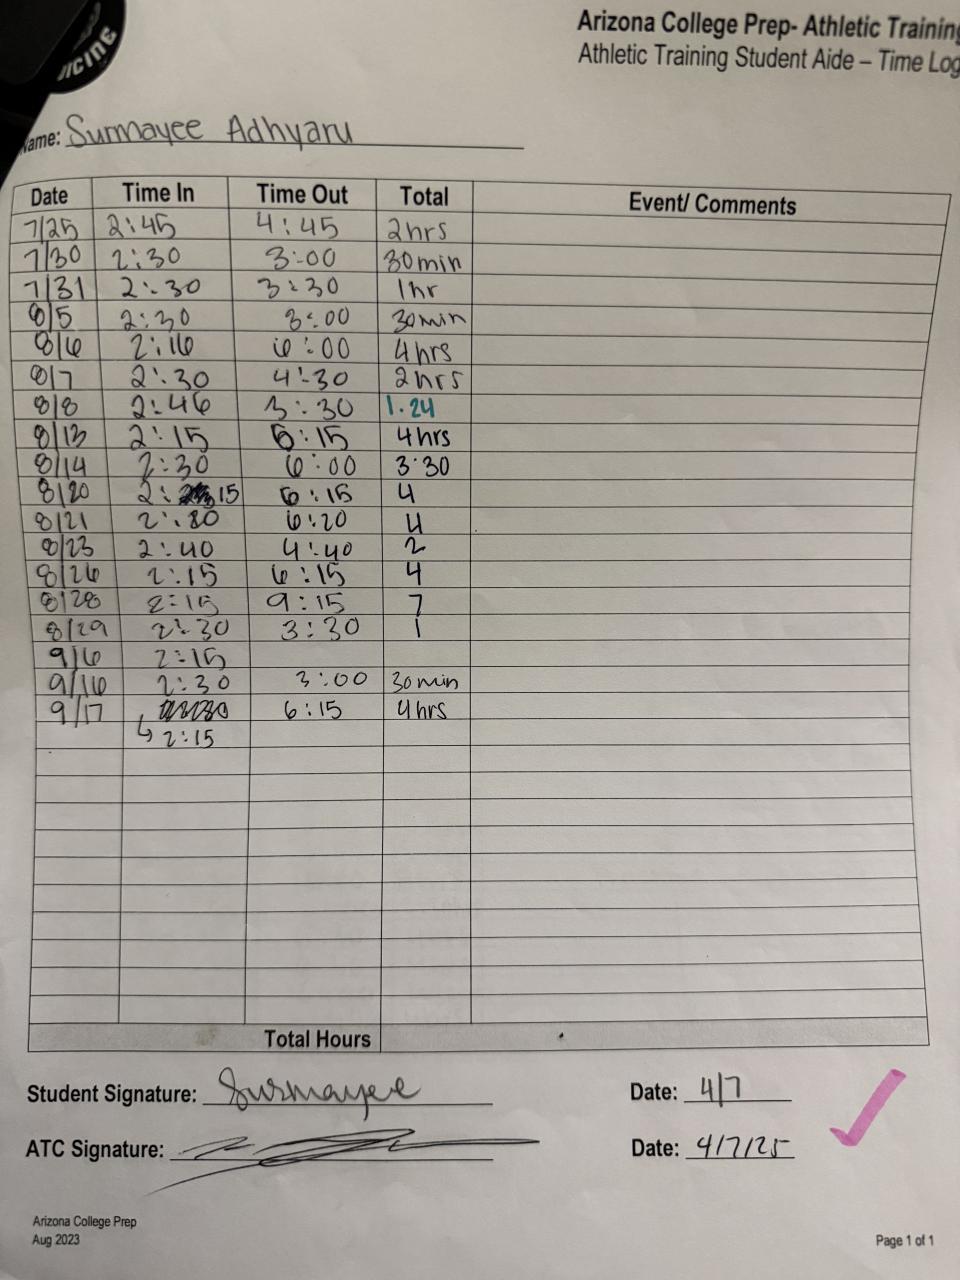 ICINE
Arizona College Prep- Athletic Training
Athletic Training Student Aide – Time Log
Name: Surmayee Adhyaru
Date Time In Time Out Total Event/ Comments
7/25 2:45 4:45 2hrs
7/30 2:30 3:00 30min
7/31 2:30 3:30 1hr
8/5 2:30 3:00 30min
8/6 2:16 6:00 4hrs
8/7 2:30 4:30 2hrs
8/8 2:46 3:30 1.24
8/13 2:15 6:15 4hrs
8/14 2:30 6:00 3:30
8/20 2: 15 6:15 4
8/21 2:20 6:20 4
8/23 2:40 4:40 2
8/26 2:15 6:15 4
8/28 2:15 9:15 7
8/29 2:30 3:30 1
9/6 2:15
9/16 2:30 3:00 30min
9/17 6:15 4hrs
↳ 2:15
Total Hours
Student Signature: Surmayee Date: 4/7
ATC Signature: Date: 4/7/25
Arizona College Prep
Aug 2023 Page 1 of 1